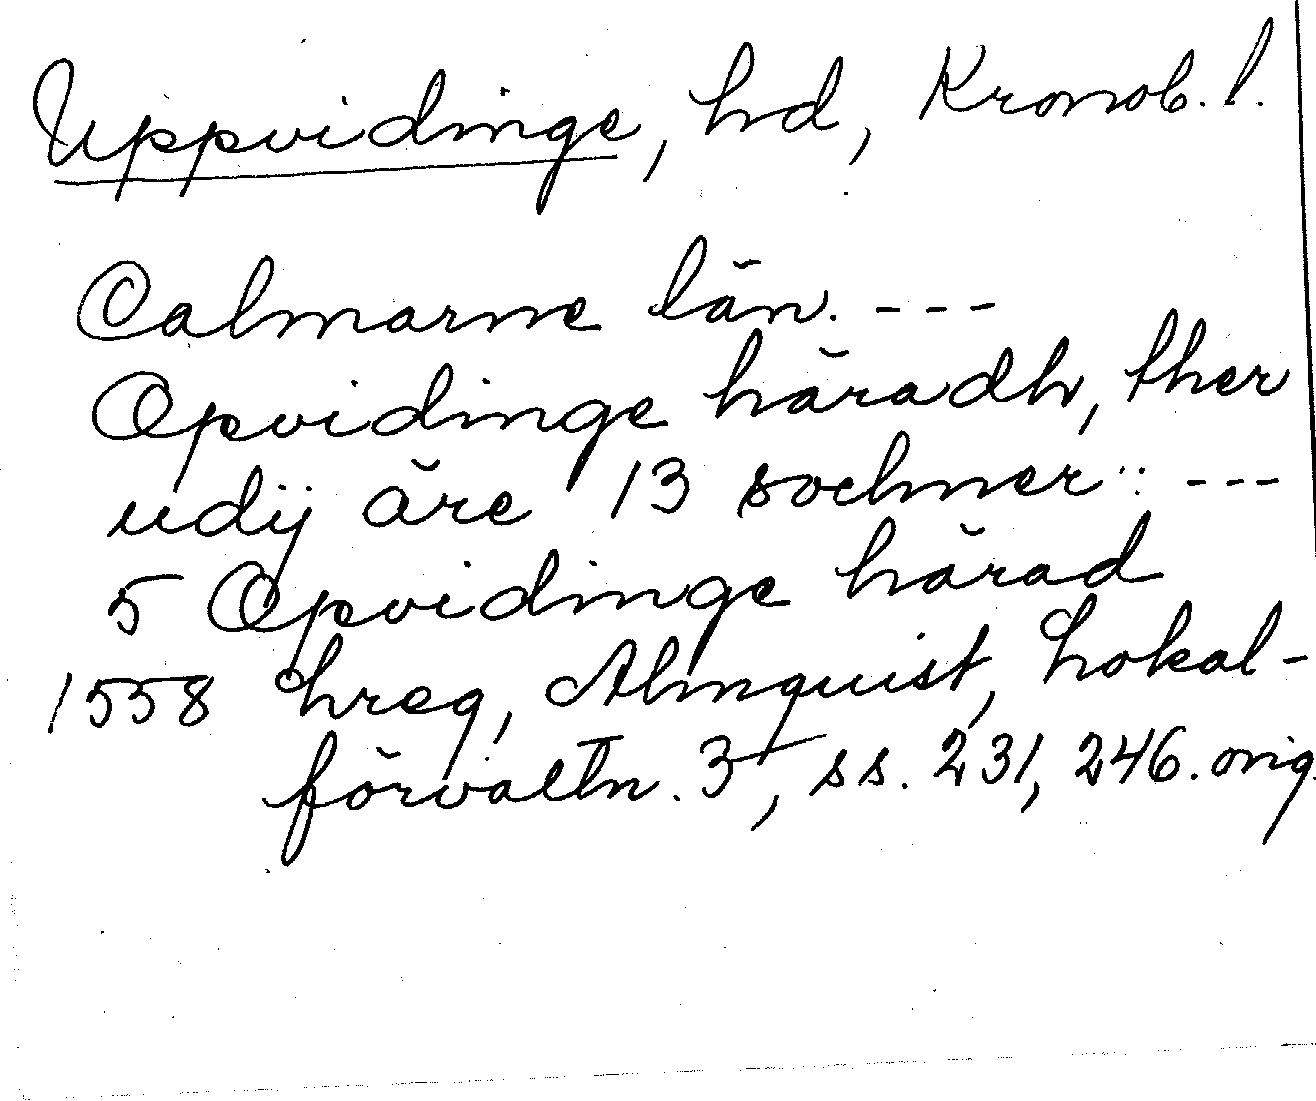 Uppvidinge, hd, Kronob. l.
Calmarne län. ---
Opvidinge häradh, ther
udij äre 13 sochner: ---
5 Opvidinge härad
1558 hreg, Almquist, Lokal-
förvaltn. 3, ss. 231, 246. orig.